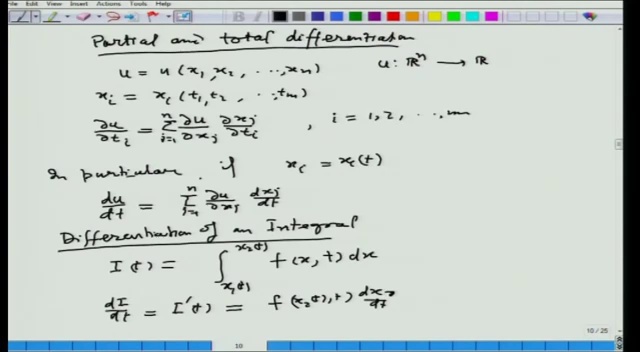 View Insert Actions Tools Help
Partial and total differentiation
u = u(x₁, x₂, ..., xₙ)    u: ℝⁿ ⟶ ℝ
xᵢ = xᵢ(t₁, t₂, ..., tₘ)
∂u/∂tᵢ = Σⱼ₌₁ⁿ ∂u/∂xⱼ ∂xⱼ/∂tᵢ , i = 1, 2, ..., m
In particular, if xᵢ = xᵢ(t)
du/dt = Σⱼ₌₁ⁿ ∂u/∂xⱼ dxⱼ/dt
Differentiation of an Integral
I(t) = ∫_{x₁(t)}^{x₂(t)} f(x, t) dx
dI/dt = I'(t) = f(x₂(t), t) dx₂/dt
10 / 25
10